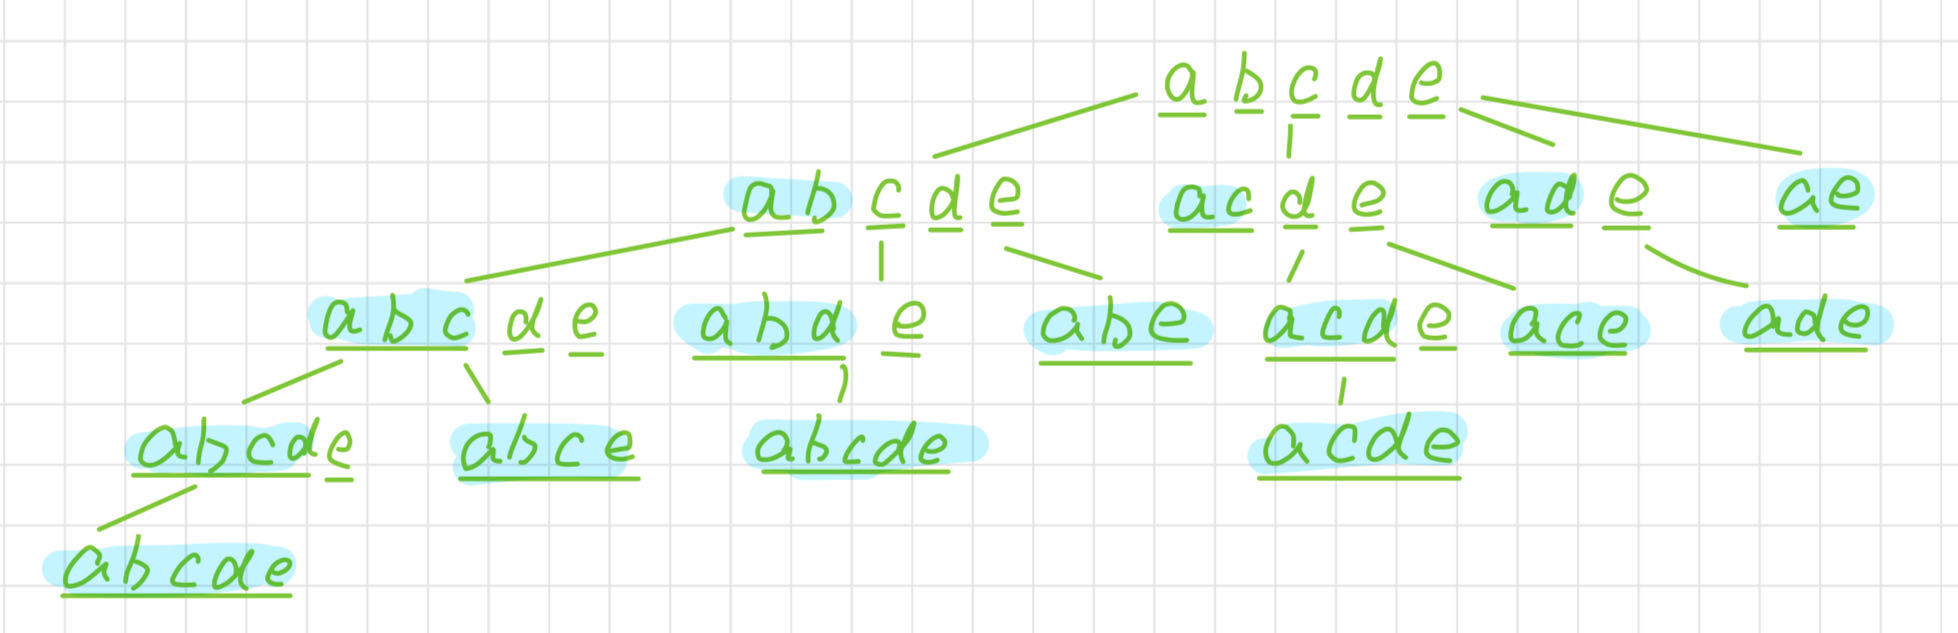 a b c d e
ab c d e ac d e ad e ae
abc d e abd e abe acd e ace ade
abcd e abce abcde acde
abcde